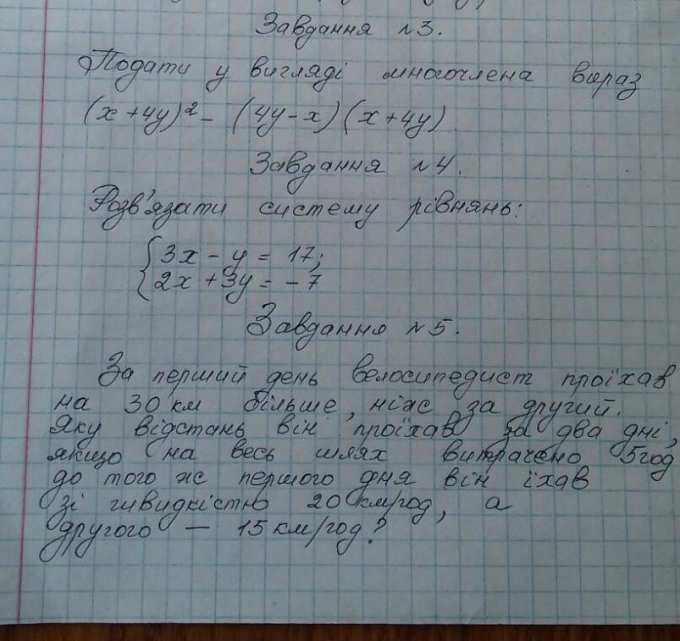 Завдання №3.
Подати у вигляді многочлена вираз
(x+4y)² - (4y-x)(x+4y)
Завдання №4.
Розв'язати систему рівнянь:
{3x - y = 17;
2x + 3y = -7
Завдання №5.
За перший день велосипедист проїхав
на 30 км більше, ніж за другий.
Яку відстань він проїхав за два дні,
якщо на весь шлях витрачено 5год
до того ж першого дня він їхав
зі швидкістю 20 км/год, а
другого — 15 км/год?